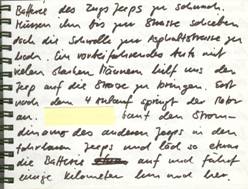 Batterie des Zugs Jeeps zu schwach.
Müssen ihn bis zur Strasse schieben
doch die Schwelle zur Asphaltstrasse zu
hoch. Ein vorbeifahrendes Auto mit
vielen starken Männern hilft uns den
Jeep auf die Strasse zu bringen. Erst
nach dem 4 anlauf springt der Motor
an. baut den Strom
des anderen Jeeps in den
fahrbaren Jeeps und läd so etwas
die Batterie auf und fährt
einige Kilometer hin und her.